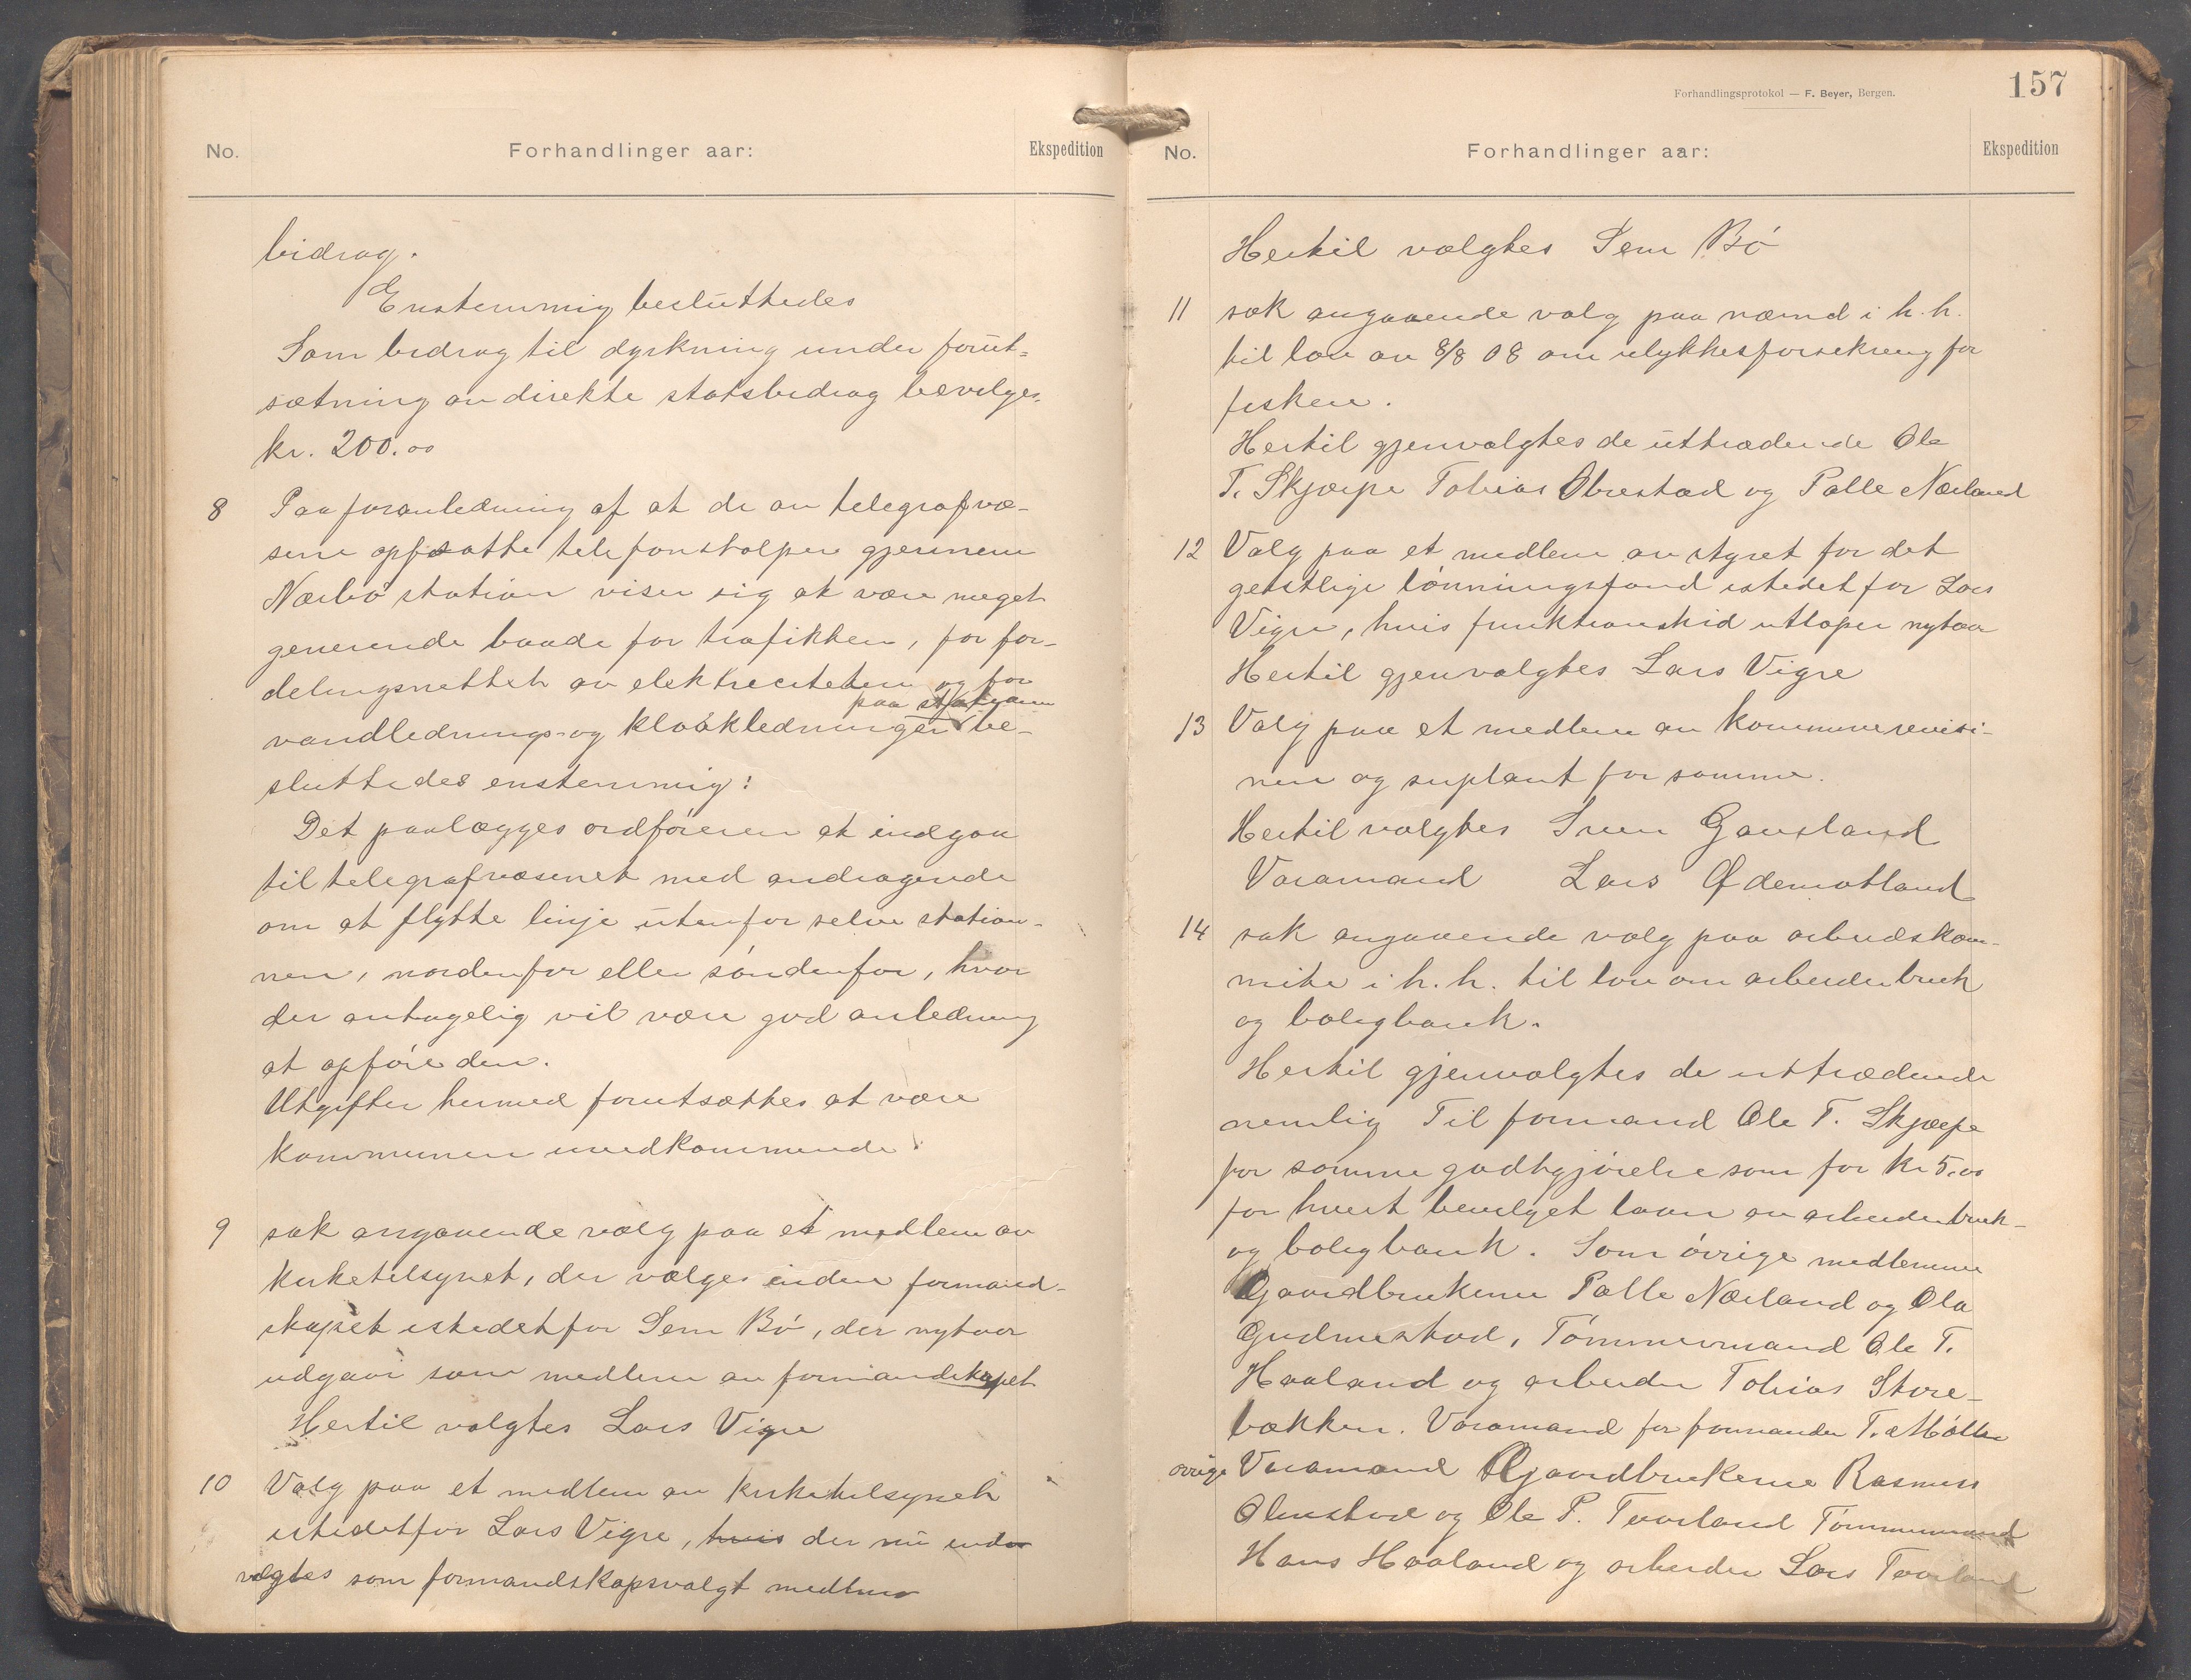 No.
Forhandlinger aar:
Ekspedition
bidrag.
Enstemmig besluttedes
Som bidrag til dyrkning under forut=
sætning av direkte statsbidrag bevilges
kr. 200.00
8 Paa foranledning af at de av telegrafvæ-
senet opsatte telefonstolper gjennem
Nærbø station viser sig at være meget
generende baade for trafikken, for for-
delingsnettet av elektriciteten og for
vandlednings- og kloakledninger paa be-
sluttedes enstemmig:
Det paalægges ordføreren at indgaa
til telegrafvæsenet med andragende
om at flytte linje utenfor selve station-
nen, nordenfor eller søndenfor, hvor
der antagelig vil være god anledning
at opføre den.
Utgifter hermed forutsættes at være
kommunen uvedkommende.
9 sak angaaende valg paa et medlem av
kirketilsynet, der vælges inden formand-
skapet istedetfor Sem Bø, der nytaar
udgaar som medlem av formandskapet
Hertil valgtes Lars Vigre
10 Valg paa et medlem av kirketilsynet
istedetfor Lars Vigre, hvis der nu
vælgtes som formandskapsvalgt medlem
Forhandlingsprotokol — F. Beyer, Bergen.
157
No.
Forhandlinger aar:
Ekspedition
Hertil valgtes Sem Bø
11 sak angaaende valg paa nævnd i h.h.
til lov av 8/8 08 om ulykkesforsikring for
fiskere.
Hertil gjenvalgtes de uttrædende Ole
T. Skjærpe Tobias Obrestad og Palle Nærland
12 Valg paa et medlem av styret for det
geistlige lønningsfond istedet for Lars
Vigre, hvis funktionstid utløper nytaar
Hertil gjenvalgtes Lars Vigre
13 Valg paa et medlem av kommunerevisi-
nen og suplant for samme.
Hertil valgtes Sven Gausland
Varamand Lars Ødemotland
14 sak angaaende valg paa arbeidskom-
mite i h.h. til lov om arbeiderbruk
og boligbank.
Hertil gjenvalgtes de uttrædende
nemlig Til formand Ole T. Skjærpe
for samme godtgjørelse som før kr 5.00
for hvert bevilget laan av arbeiderbruk-
og boligbank. Som øvrige medlemmer
Gaardbrukerne Palle Nærland og Ola
Gudmestad, Tømmermand Ole T.
Haaland og arbeider Tobias Store-
bækken. Varamand for formanden T. Møller
øvrige Varamænd Gaardbrukerne Rasmus
Obrestad og Ole P. Tuorland Tømmermand
Hans Haaland og arbeider Lars Tuorland